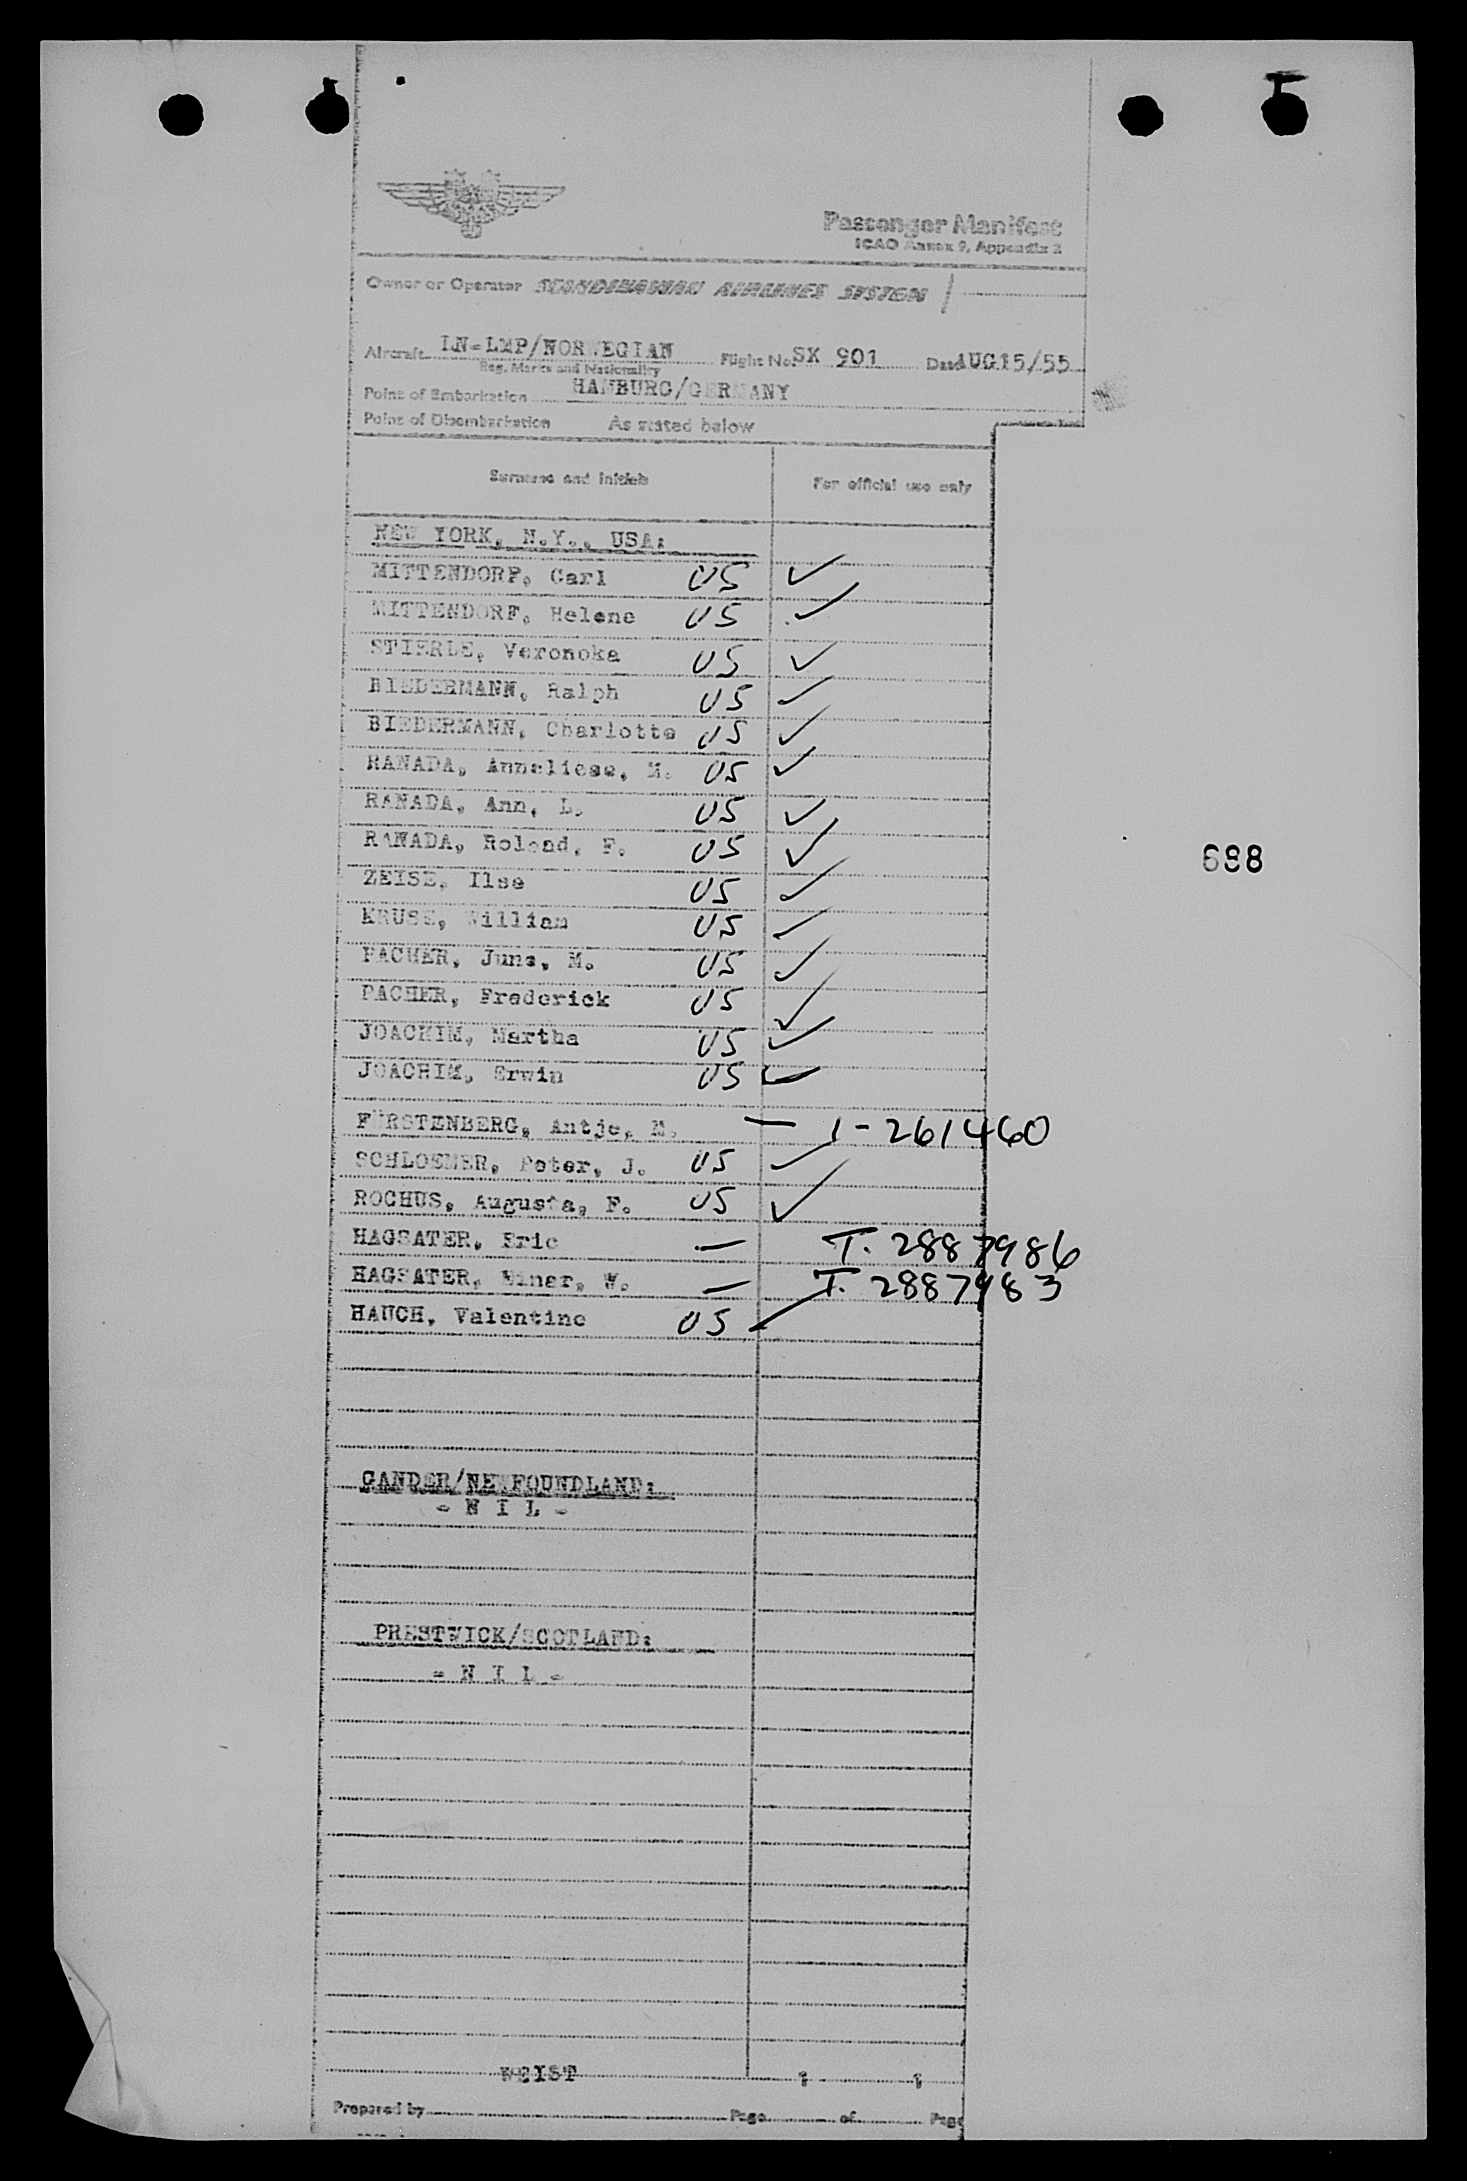 Passenger Manifest
ICAO Annex 9, Appendix 2
Owner or Operator SCANDINAVIAN AIRLINES SYSTEM
Aircraft LN-LMP/NORWEGIAN Flight No. SK 901 Date AUG15/55
Reg. Marks and Nationality
Point of Embarkation HAMBURG/GERMANY
Point of Disembarkation As stated below
Surname and initials For official use only
NEW YORK, N.Y., USA:
MITTENDORF, Carl US ✓
MITTENDORF, Helene US ✓
STIERLE, Veronoka US ✓
BIEDERMANN, Ralph US ✓
BIEDERMANN, Charlotte US ✓
RANADA, Anneliese, M. US ✓
RANADA, Ann, L. US ✓
RANADA, Roland, F. US ✓
ZEISE, Ilse US ✓
KRUSE, William US ✓
PACHER, June, M. US ✓
PACHER, Frederick US ✓
JOACHIM, Martha US ✓
JOACHIM, Erwin US ✓
FÜRSTENBERG, Antje, M. — 1-261460
SCHLOEMER, Peter, J. US ✓
ROCHUS, Augusta, F. US ✓
HAGSATER, Eric — T. 2887986
HAGSATER, W. — T. 2887983
HAUCH, Valentine US ✓
688
GANDER/NEWFOUNDLAND:
- N I L -
PRESTWICK/SCOTLAND:
- N I L -
WEIST 1 1
Prepared by Page of Page